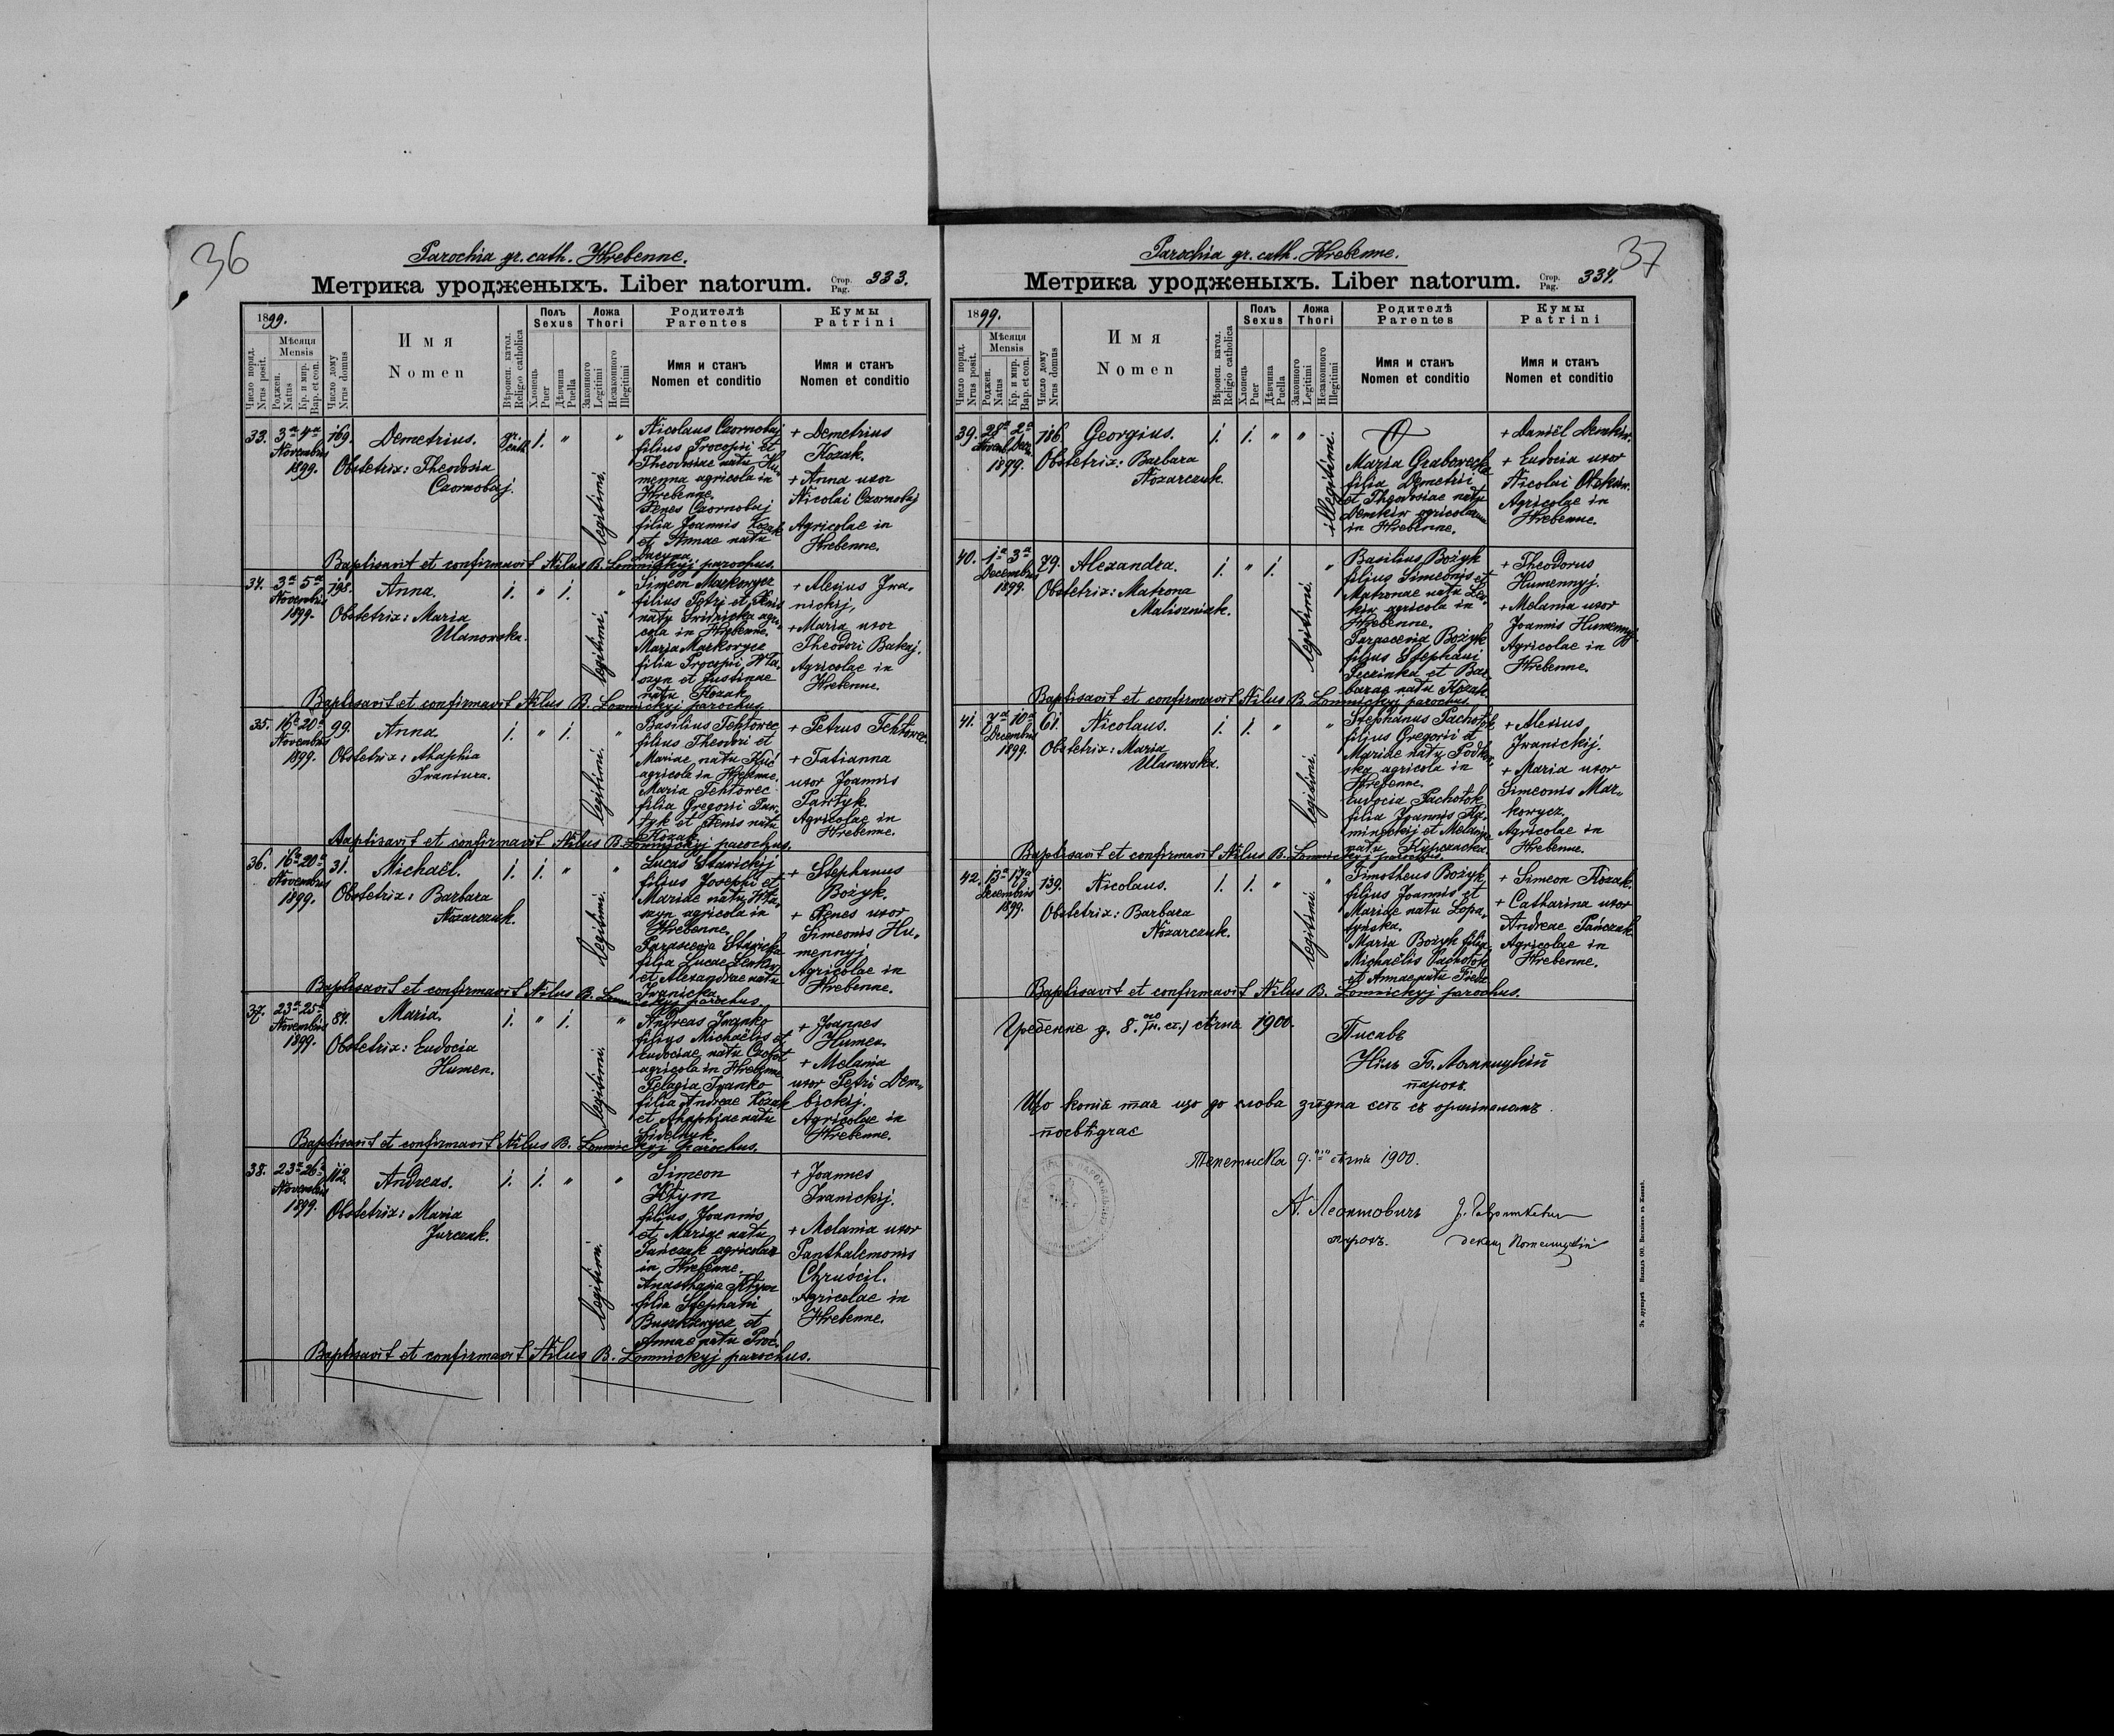 36
Parochia gr. cath. Hrebenne.
Метрика уродженыхъ. Liber natorum. Стор. Pag. 333.
1899.
Число поряд. Nrus posit.
Мѣсяця Mensis
Роджен. Natus
Кр. и мир. Bap. et con.
Число дому Nrus domus
Имя
Nomen
Вѣроисп. катол. Religio catholica
Полъ Sexus
Хлопець Puer
Дѣвчина Puella
Ложа Thori
Законного Legitimi
Незаконного Illegitimi
Родителѣ Parentes
Имя и станъ
Nomen et conditio
Кумы Patrini
Имя и станъ
Nomen et conditio
33. 3a 4a Novembris 1899. 169. Demetrius. gr. cath. 1. " legitimi. "
Obstetrix: Theodosia
Czornobaj.
Nicolaus Czornobaj
filius Procopii et
Theodosiae natu Hu-
menna agricola in
Hrebenne.
Xenes Czornobaj
filia Joannis Kozak
et Annae natu
+ Demetrius
Kozak.
+ Anna uxor
Nicolai Czornobaj
Agricolae in
Hrebenne.
Baptisavit et confirmavit Nilus B. Lomnickyj parochus.
34. 3a 5a Novembris 1899. 198. Anna. 1. " 1. legitimi. "
Obstetrix: Maria
Ulanowska.
Simeon Markowycz
filius Petri et Xenis
natu Sridnicka agri-
cola in Hrebenne.
Maria Markowycz
filia Procopii
et Justinae
natu Kozak
+ Alexius Iwa-
nickij,
+ Maria uxor
Theodori Bakaj.
Agricolae in
Hrebenne.
Baptisavit et confirmavit Nilus B. Lomnickyj parochus
35. 16a 20a Novembris 1899. 99. Anna 1. " 1. legitimi. "
Obstetrix: Ahaphia
Iwaniura.
Basilius Tehlowec
filius Theodori et
Mariae natu Kuc
agricola in Hrebenne.
Maria Tehlowec
filia Gregorii Paw-
tyk et Xenis natu
Kozak
+ Petrus Tehlowec.
+ Tatianna
uxor Joannis
Pawtyk.
Agricolae in
Hrebenne.
Baptisavit et confirmavit Nilus B. Lomnickyj parochus.
36. 16a 20a Novembris 1899. 31. Michaël. 1. 1. " legitimi. "
Obstetrix: Barbara
Nazarczuk.
Lucas Stavickij
filius Josephi et
Mariae natu
agricola in
Hrebenne.
Parascevia Stavicka
filia Lucae
et Alexandrae natu
Iwanicka
+ Stephanus
Bożyk.
+ Xenes uxor
Simeonis Hu-
mennyj
Agricolae in
Hrebenne.
Baptisavit et confirmavit Nilus B. Lomnickyj parochus.
37. 23a 25a Novembris 1899. 84. Maria. 1. " 1. legitimi. "
Obstetrix: Eudocia
Humen.
Andreas Iwanko
filius Michaëlis et
Eudociae natu
agricola in Hrebenne
Pelagia Iwanko
filia Andreae Kozak
et Ahaphiae natu
+ Joannes
Humen.
+ Melania
uxor Petri Dem-
bickij.
Agricolae in
Hrebenne.
Baptisavit et confirmavit Nilus B. Lomnickyj parochus.
38. 23a 26a Novembris 1899. 112. Andreas. 1. 1. " legitimi. "
Obstetrix: Maria
Jurczak.
Simeon
Kłym
filius Joannis
et Mariae natu
Pańczak agricolae
in Hrebenne.
Anasthasia Kłym
filia Stephani
et
Annae natu
+ Joannes
Iwanickij.
+ Melania uxor
Panthalemonis
Chruścil.
Agricolae in
Hrebenne.
Baptisavit et confirmavit Nilus B. Lomnickyj parochus.
37
Parochia gr. cath. Hrebenne.
Метрика уродженыхъ. Liber natorum. Стор. Pag. 334.
1899.
Число поряд. Nrus posit.
Мѣсяця Mensis
Роджен. Natus
Кр. и мир. Bap. et con.
Число дому Nrus domus
Имя
Nomen
Вѣроисп. катол. Religio catholica
Полъ Sexus
Хлопець Puer
Дѣвчина Puella
Ложа Thori
Законного Legitimi
Незаконного Illegitimi
Родителѣ Parentes
Имя и станъ
Nomen et conditio
Кумы Patrini
Имя и станъ
Nomen et conditio
39. 28a Novemb. 2a Decem. 1899. 186. Georgius. 1. 1. " " illegitimi.
Obstetrix: Barbara
Nazarczuk.
Maria Grabowecka
filia Demetrii
et Theodosiae natu
Demkiw agricolarum
in Hrebenne.
+ Daniël Demkiw.
+ Eudocia uxor
Nicolai
Agricolae in
Hrebenne.
40. 1a 3a Decembris 1899. 79. Alexandra. 1. " 1. legitimi. "
Obstetrix: Matrona
Maliszniak.
Basilius Bożyk
filius Simeonis et
Matronae natu Lew-
kiw agricola in
Hrebenne.
Parascevia Bożyk
filius Stephani
et Bar-
barae natu Kozak.
+ Theodorus
Humennyj.
+ Melania uxor
Joannis Humennyj
Agricolae in
Hrebenne.
Baptisavit et confirmavit Nilus B. Lomnickyj parochus.
41. 7a 10a Decembris 1899. 61. Nicolaus. 1. 1. " legitimi. "
Obstetrix: Maria
Ulanowska.
Stephanus Pachotok
filius Gregorii et
Mariae natu
agricola in
Hrebenne.
Eudocia Pachotok
filia Joannis Ka-
mineckij et Melaniae
natu
+ Alexius
Iwanickij.
+ Maria uxor
Simeonis Mar-
kowycz.
Agricolae in
Hrebenne.
Baptisavit et confirmavit Nilus B. Lomnickyj parochus.
42. 13a 17a Decembris 1899. 139. Nicolaus. 1. 1. " legitimi. "
Obstetrix: Barbara
Nazarczuk.
Timotheus Bożyk
filius Joannis et
Mariae natu Lopa-
tyńska.
Maria Bożyk filia
Michaëlis Pachotok
et Annae natu
+ Simeon Kozak.
+ Catharina uxor
Andreae Pańczak.
Agricolae in
Hrebenne.
Baptisavit et confirmavit Nilus B. Lomnickyj parochus.
Гребенне д. 8. го (н. ст.) сѣчня 1900.
Писавъ
Нілъ Б. Ломницкій
парохъ.
Що копія тая що до слова згôдна єсть съ оригіналомъ
посвѣдчає
9. сѣчня 1900.
А. Леонтовичъ
парохъ.
декан